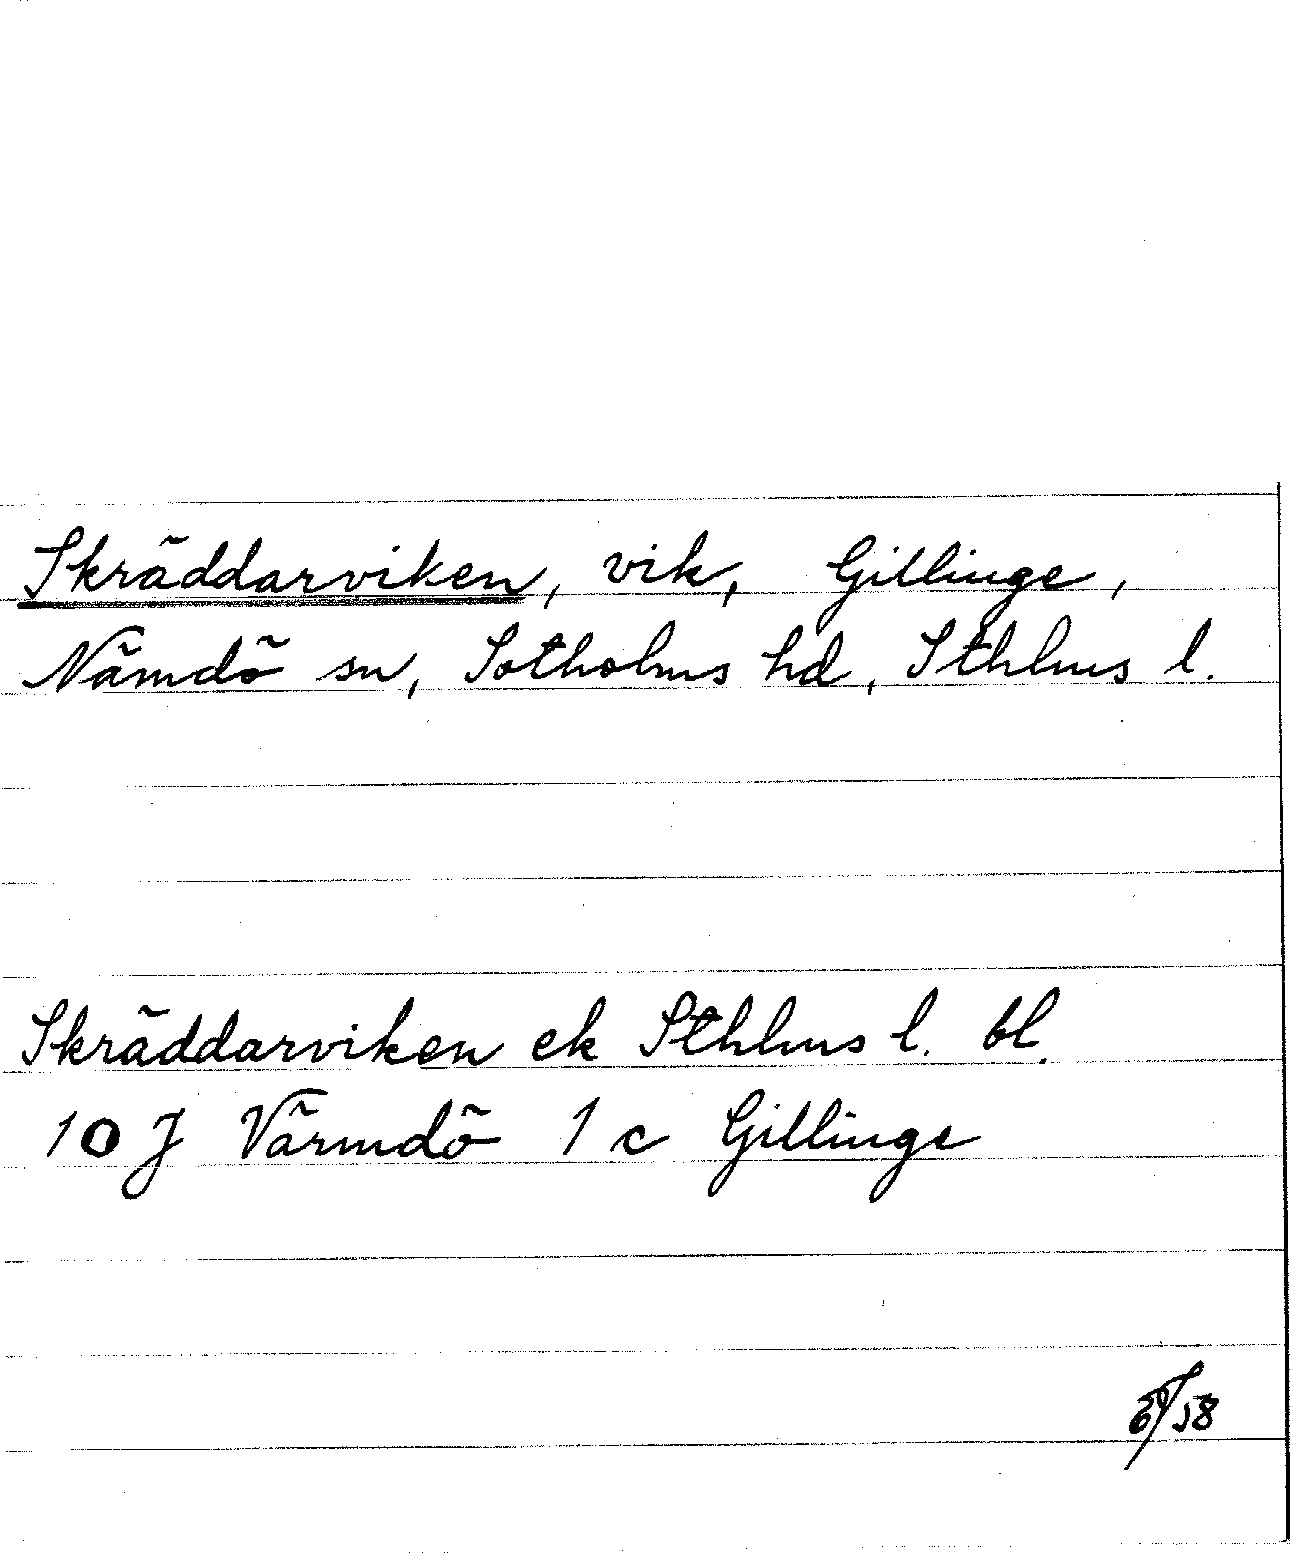 Skräddarviken, vik, Gillinge,
Nämdö sn, Sotholms hd, Sthlms l.
Skräddarviken ek Sthlms l. bl.
10 J Värmdö 1 c Gillinge